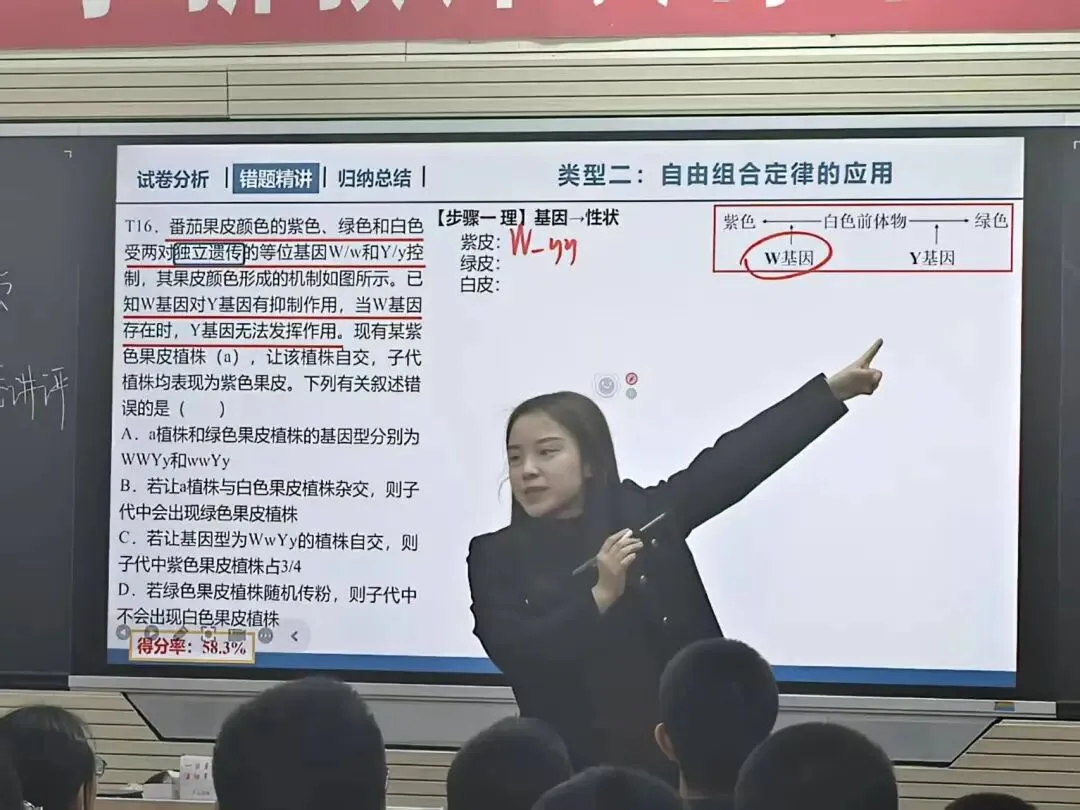 试卷分析 错题精讲 归纳总结 类型二：自由组合定律的应用
T16．番茄果皮颜色的紫色、绿色和白色
受两对独立遗传的等位基因W/w和Y/y控
制，其果皮颜色形成的机制如图所示。已
知W基因对Y基因有抑制作用，当W基因
存在时，Y基因无法发挥作用。现有某紫
色果皮植株（a），让该植株自交，子代
植株均表现为紫色果皮。下列有关叙述错
误的是（ ）
A．a植株和绿色果皮植株的基因型分别为
WWYy和wwYy
B．若让a植株与白色果皮植株杂交，则子
代中会出现绿色果皮植株
C．若让基因型为WwYy的植株自交，则
子代中紫色果皮植株占3/4
D．若绿色果皮植株随机传粉，则子代中
不会出现白色果皮植株
得分率：58.3%
【步骤一 理】基因→性状
紫皮：W_yy
绿皮：
白皮：
紫色 ← 白色前体物 → 绿色
W基因 Y基因
讲评